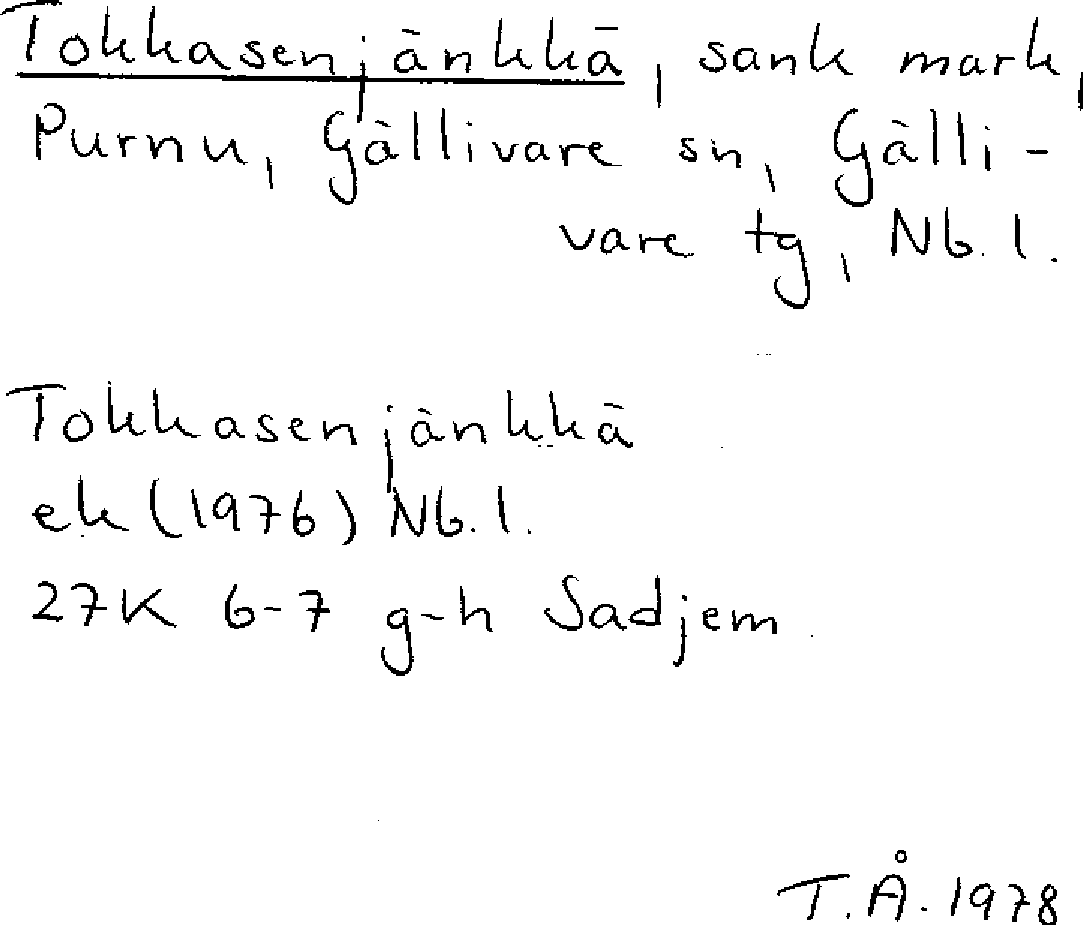 Tokkasenjänkkä, sank mark,
Purnu, Gällivare sn, Gälli-
vare tg, Nb. l.
Tokkasenjänkkä
ek (1976) Nb. l.
27K 6-7 g-h Sadjem
T.Å. 1978